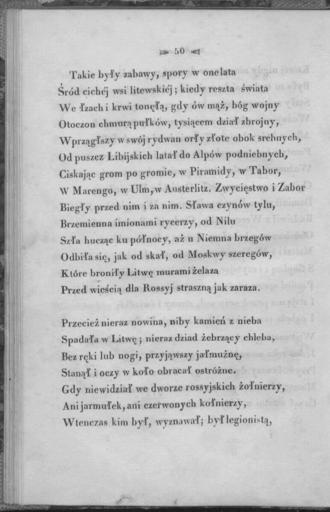 50
Takie były zabawy, spory w one lata
Śród cichéj wsi litewskiéj; kiedy reszta świata
We łzach i krwi tonęła, gdy ów mąż, bóg wojny
Otoczon chmurą pułków, tysiącem dział zbrojny,
Wprzągłszy w swój rydwan orły złote obok srebnych,
Od puszcz Libijskich latał do Alpów podniebnych,
Ciskając grom po gromie, w Piramidy, w Tabor,
W Marengo, w Ulm, w Austerlitz. Zwycięstwo i Zabor
Biegły przed nim i za nim. Sława czynów tylu,
Brzemienna imionami rycerzy, od Nilu
Szła hucząc ku północy, aż u Niemna brzegów
Odbiła się, jak od skał, od Moskwy szeregów,
Które broniły Litwę murami żelaza
Przed wieścią dla Rossyj straszną jak zaraza.
Przecież nieraz nowina, niby kamień z nieba
Spadała w Litwę; nieraz dziad żebrzący chleba,
Bez ręki lub nogi, przyjąwszy jałmużnę,
Stanął i oczy w koło obracał ostróżne.
Gdy niewidział we dworze rossyjskich żołnierzy,
Ani jarmułek, ani czerwonych kołnierzy,
Wtenczas kim był, wyznawał; był legionistą,